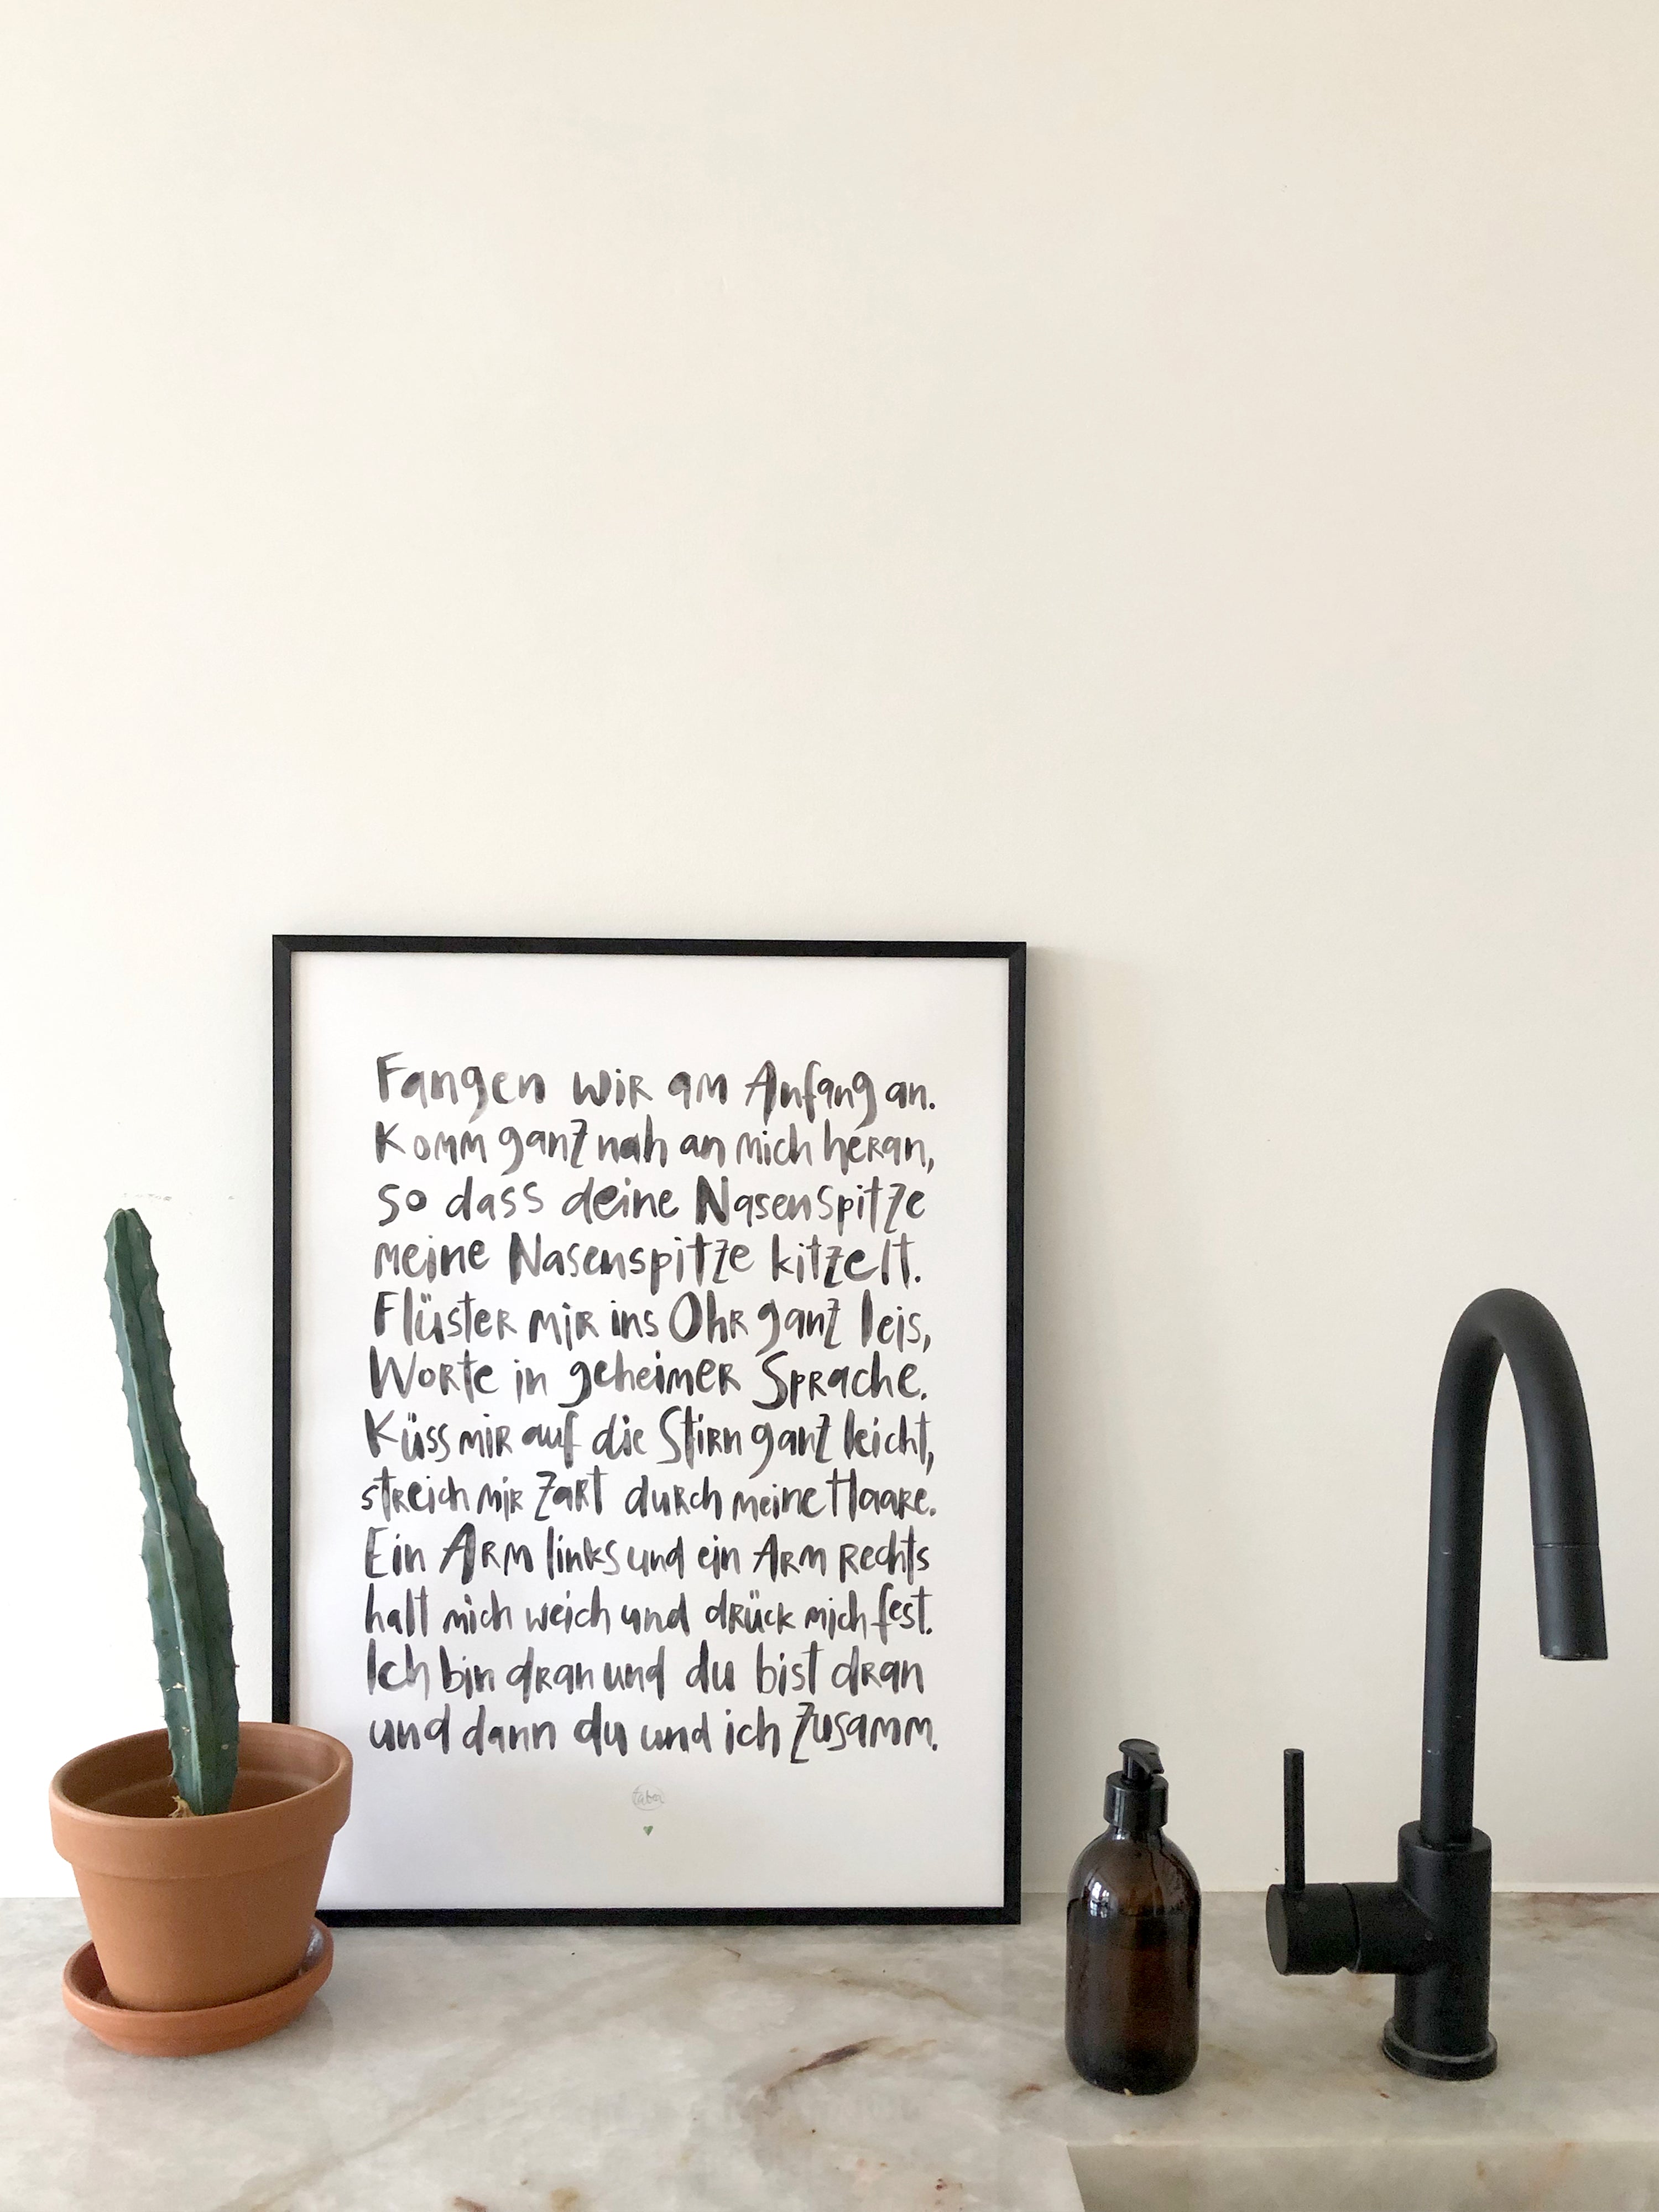 Fangen wir am Anfang an.
Komm ganz nah an mich heran,
so dass deine Nasenspitze
meine Nasenspitze kitzelt.
Flüster mir ins Ohr ganz leis,
Worte in geheimer Sprache.
Küss mir auf die Stirn ganz leicht,
streich mir zart durch meine Haare.
Ein Arm links und ein Arm rechts
halt mich weich und drück mich fest.
Ich bin dran und du bist dran
und dann du und ich zusamm.